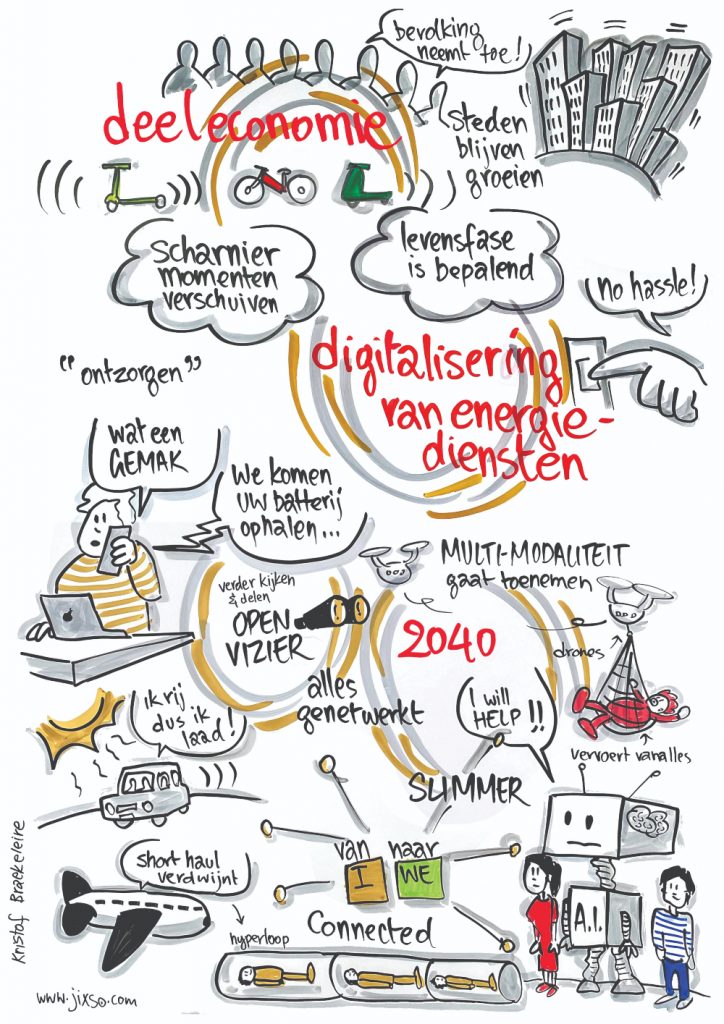 bevolking
neemt toe!
deeleconomie
steden
blijven
groeien
scharnier
momenten
verschuiven
levensfase
is bepalend
no hassle!
"ontzorgen"
digitalisering
van energie-
diensten
wat een
GEMAK
We komen
UW batterij
ophalen...
MULTI-MODALITEIT
gaat toenemen
verder kijken
& delen
OPEN
VIZIER
2040
drones
alles
genetwerkt
ik rij
dus ik
laad!
I will
HELP!!
vervoert vanalles
SLIMMER
van naar
I WE
short haul
verdwijnt
hyperloop
Connected
A.I.
Kristof Braekeleire
www.jixso.com